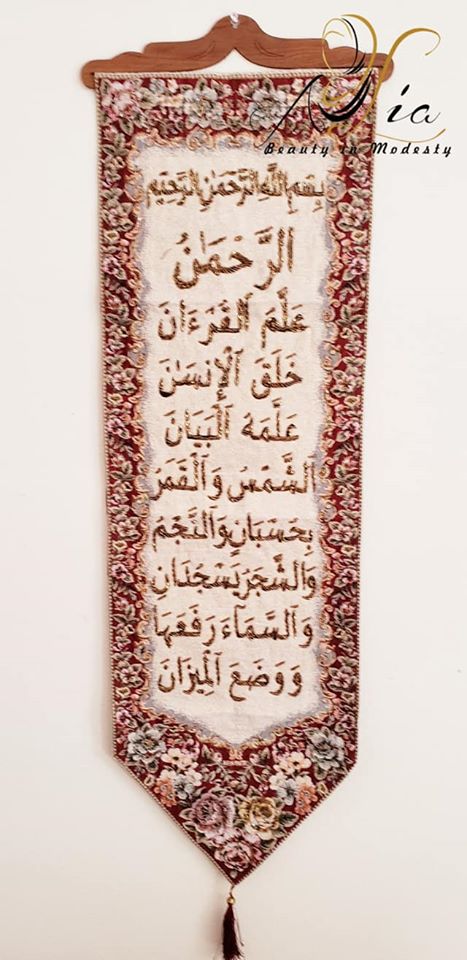 Ayia
Beauty in Modesty
بِسْمِ اللَّهِ الرَّحْمَٰنِ الرَّحِيمِ
الرَّحْمَٰنُ
عَلَّمَ الْقُرْءَانَ
خَلَقَ الْإِنسَٰنَ
عَلَّمَهُ الْبَيَانَ
الشَّمْسُ وَالْقَمَرُ
بِحُسْبَانٍ وَالنَّجْمُ
وَالشَّجَرُ يَسْجُدَانِ
وَالسَّمَاءَ رَفَعَهَا
وَوَضَعَ الْمِيزَانَ